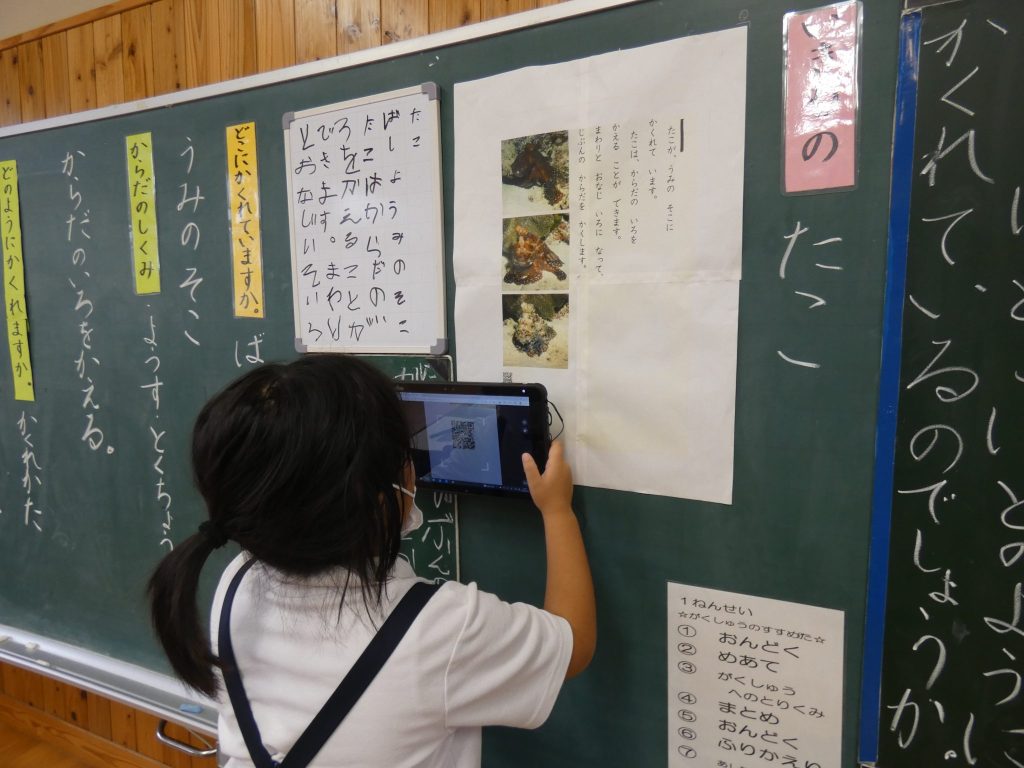 かくれているのでしょうか。
たこ
たこが、うみの そこに
かくれて います。
たこは、からだの いろを
かえる ことが できます。
まわりと おなじ いろに なって、
じぶんの からだを かくします。
たこ
ばしょうみのそこ
たこはからだのい
ろをかえることが
できます。まわり
とおなじいそいろ
どこにかくれていますか。
ば
うみのそこ
からだのしくみ
ようす・とくちょう
からだの、いろをかえる。
どのようにかくれますか。
かくれかた
1ねんせい
☆がくしゅうのすすめかた☆
① おんどく
② めあて
③ がくしゅう
へのとりくみ
④ まとめ
⑤ おんどく
⑥ ふりかえり
⑦